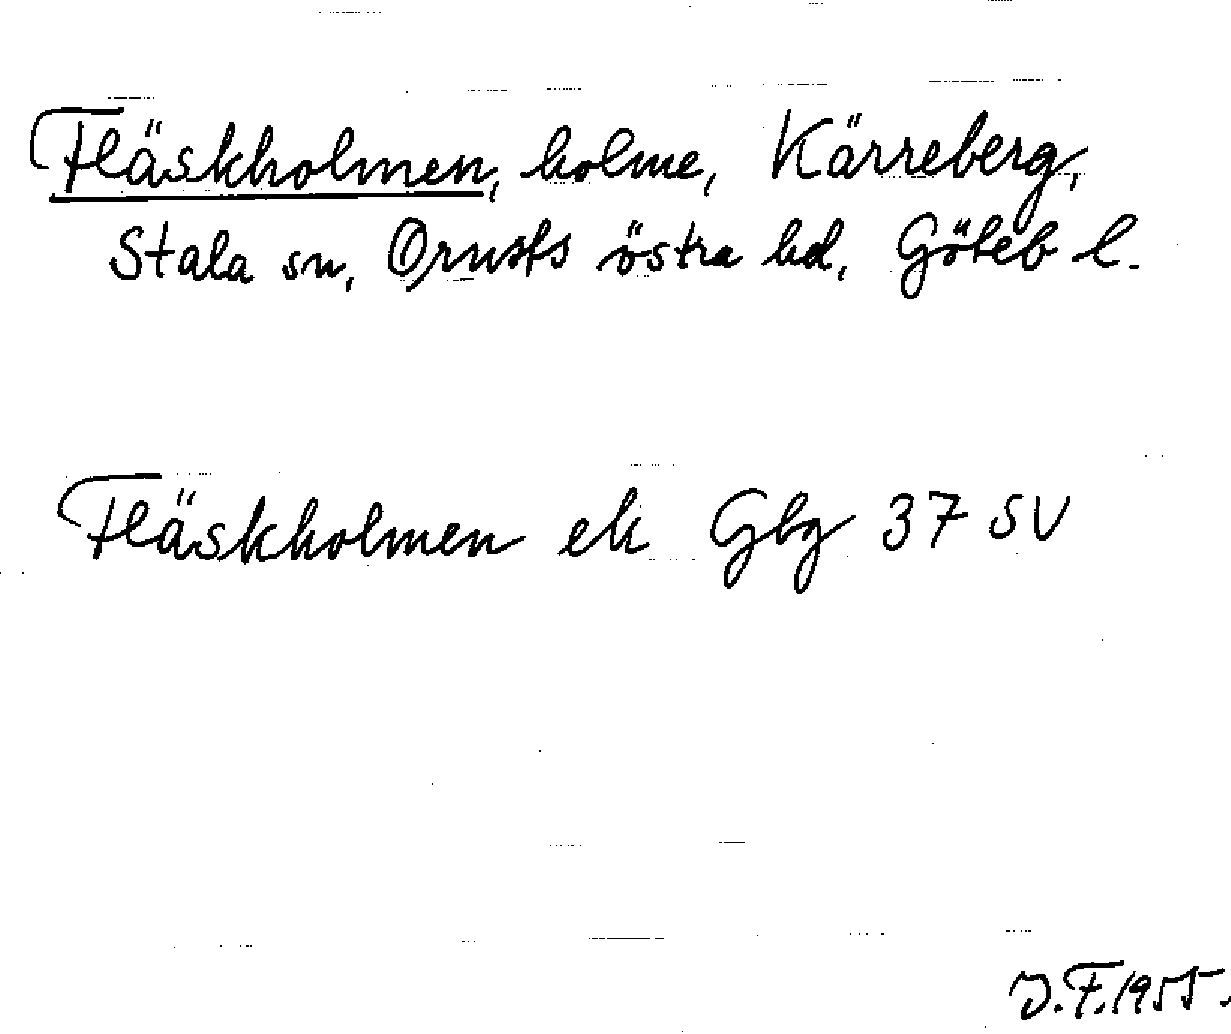 Fläskholmen, holme, Kärreberg,
Stala sn, Orusts östra hd, Göteb l.
Fläskholmen ek Gbg 37 SV
J.F. 1955.